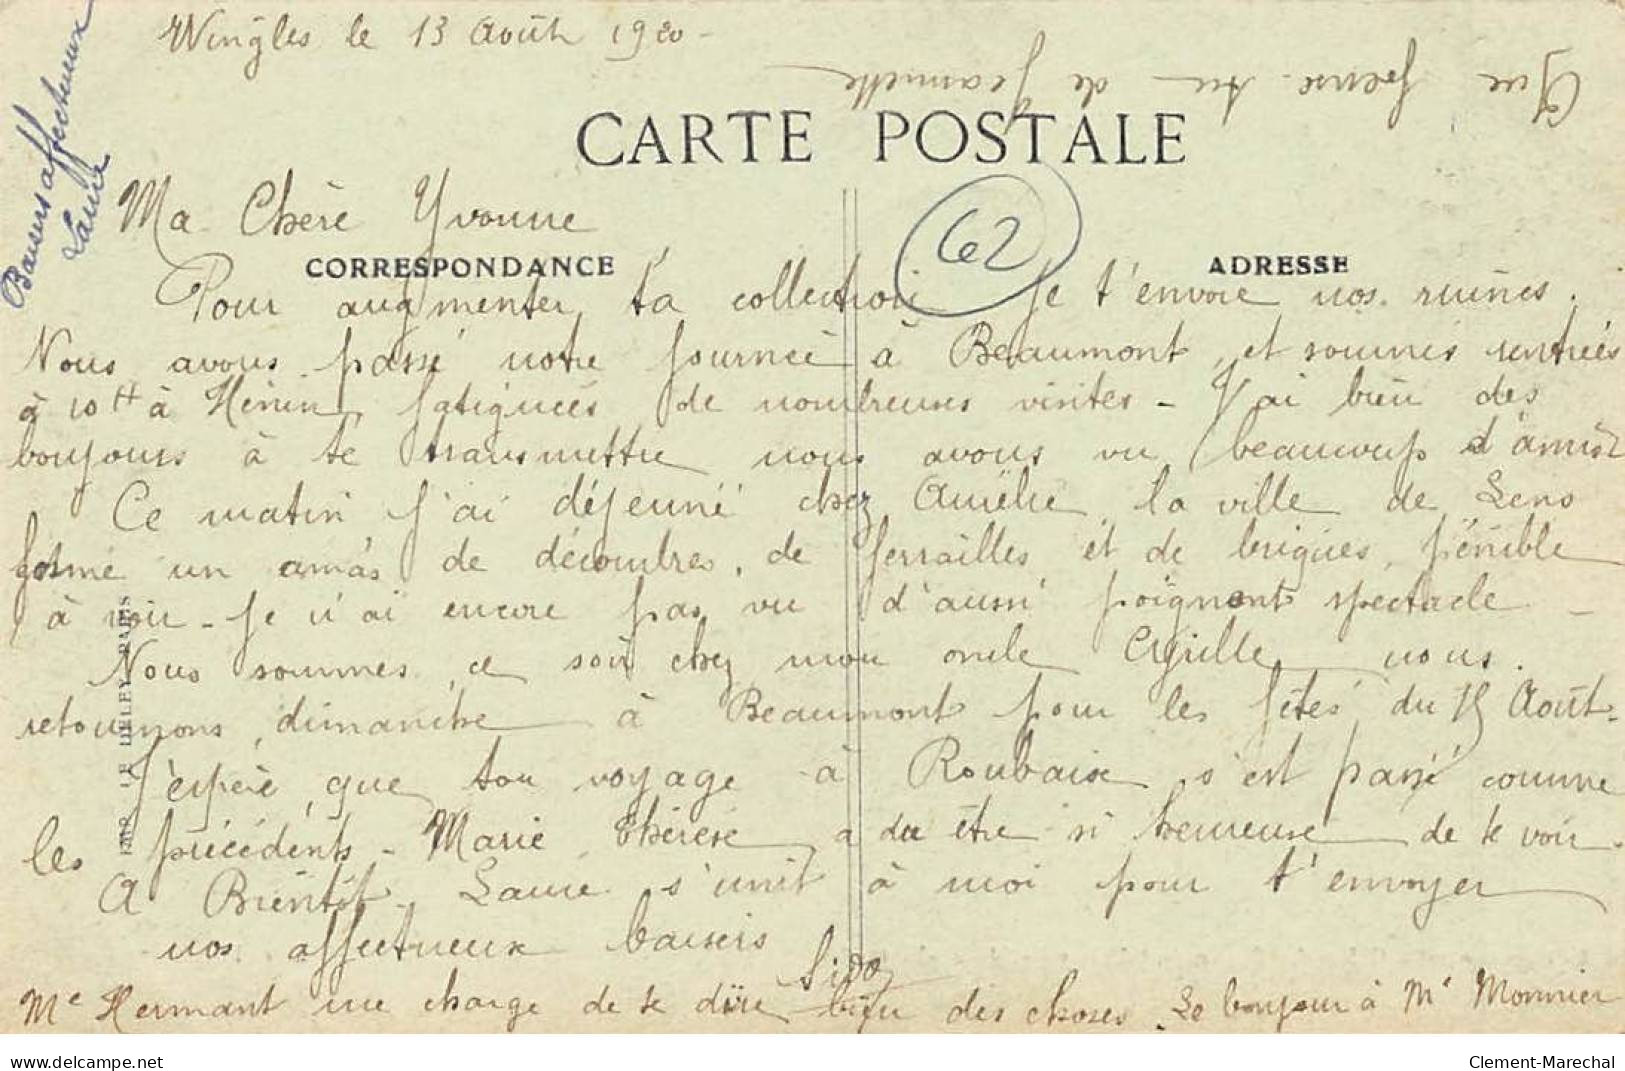 Wingles le 13 Août 1920 -
Que pense-tu de Jeannette
Baisers affectueux
Laure
CARTE POSTALE
Ma Chère Yvonne
CORRESPONDANCE
ADRESSE
62
Pour augmenter ta collection je t'envoie nos ruines.
Nous avons passé notre journée à Beaumont et sommes rentrées
à 10 H à Hénin, fatiguées de nombreuses visites - J'ai bien des
bonjours à te transmettre nous avons vu beaucoup d'amis
Ce matin j'ai déjeuné chez Aurélie, la ville de Lens
forme un amas de décombres, de ferrailles et de briques, pénible
à voir - je n'ai encore pas vu d'aussi poignant spectacle -
Nous sommes ce soir chez mon oncle nous
retournons dimanche à Beaumont pour les fêtes du 15 Août -
J'espère que ton voyage à Roubaix s'est passé comme
les précédents - Marie Thérèse a du être si heureuse de te voir.
A Bientôt Laure s'unit à moi pour t'envoyer
nos affectueux baisers
Me Hermant me charge de te dire bien des choses. Le bonjour à Mr Monnier
IMP. LE DELEY, PARIS
www.delcampe.net
Clement-Marechal